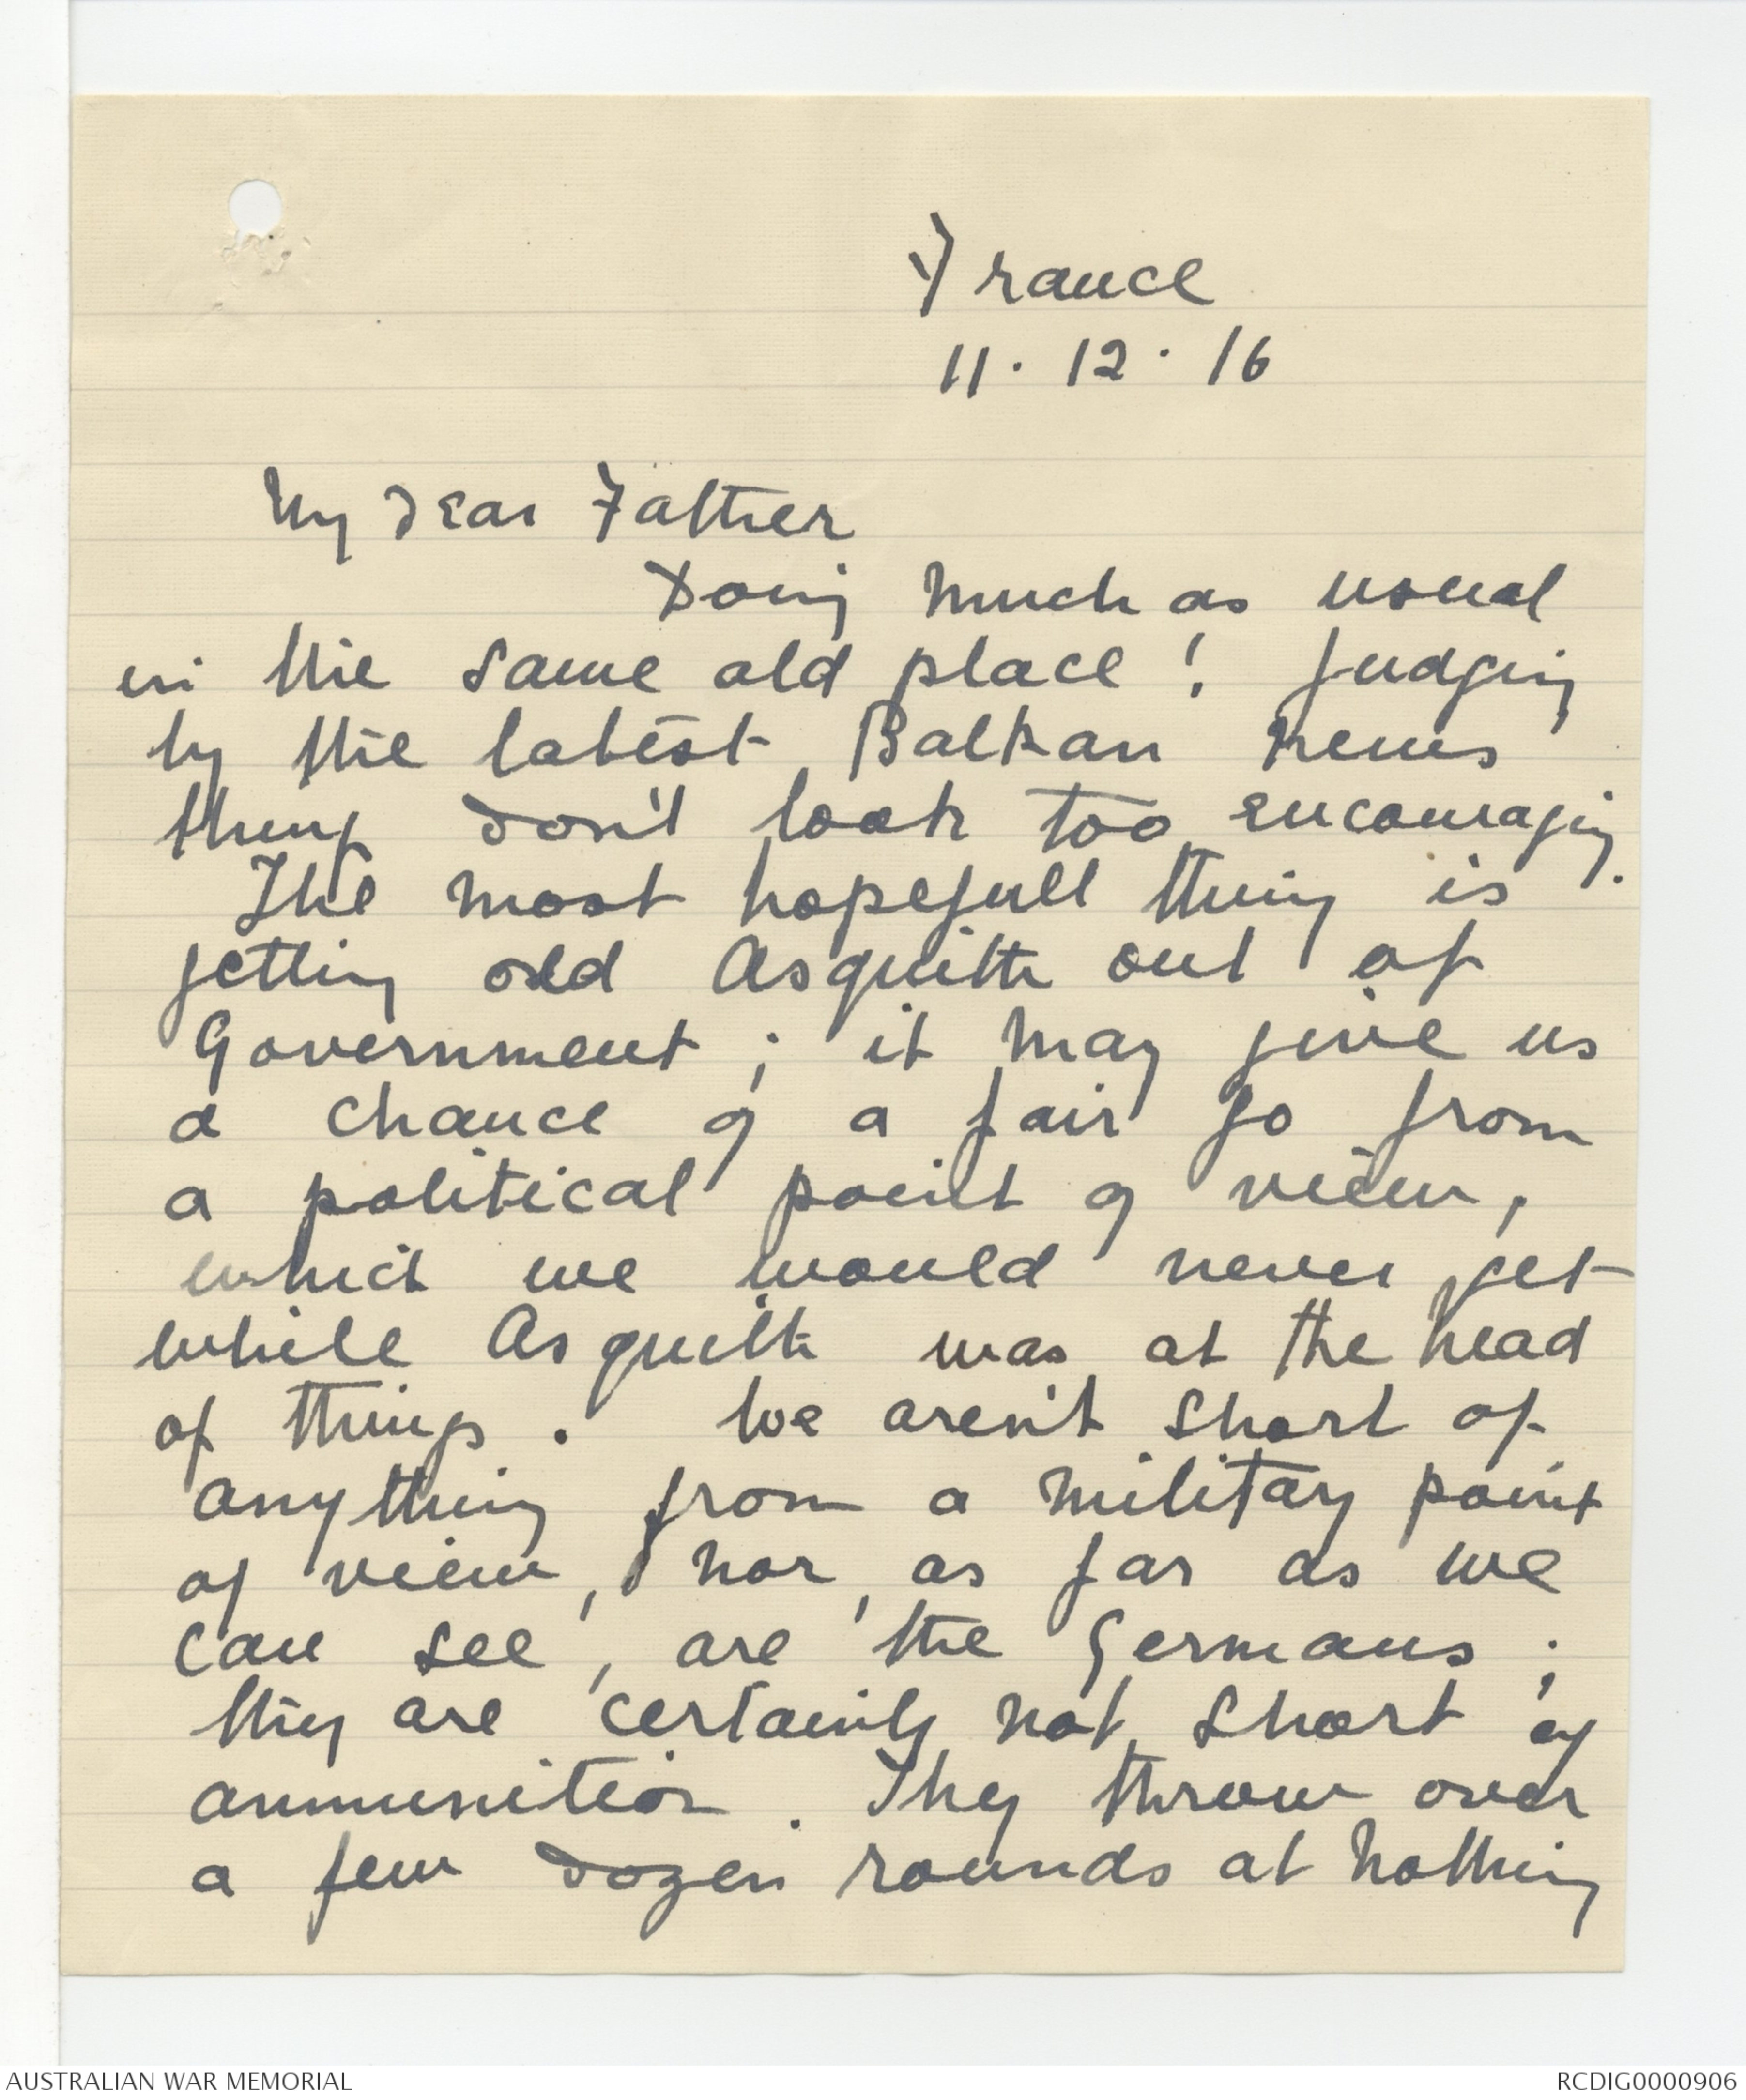 France
11. 12. 16
My dear Father
Doing much as usual
in the same old place! Judging
by the latest Balkan news
things don't look too encouraging.
The most hopefull thing is
getting old Asquith out of
Government; it may give us
a chance of a fair go from
a political point of view,
which we would never get
while Asquith was at the head
of things. We aren't short of
anything from a military point
of view, nor, as far as we
can see, are the Germans;
they are certainly not short of
ammunition. They throw over
a few dozen rounds at nothing
AUSTRALIAN WAR MEMORIAL
RCDIG0000906